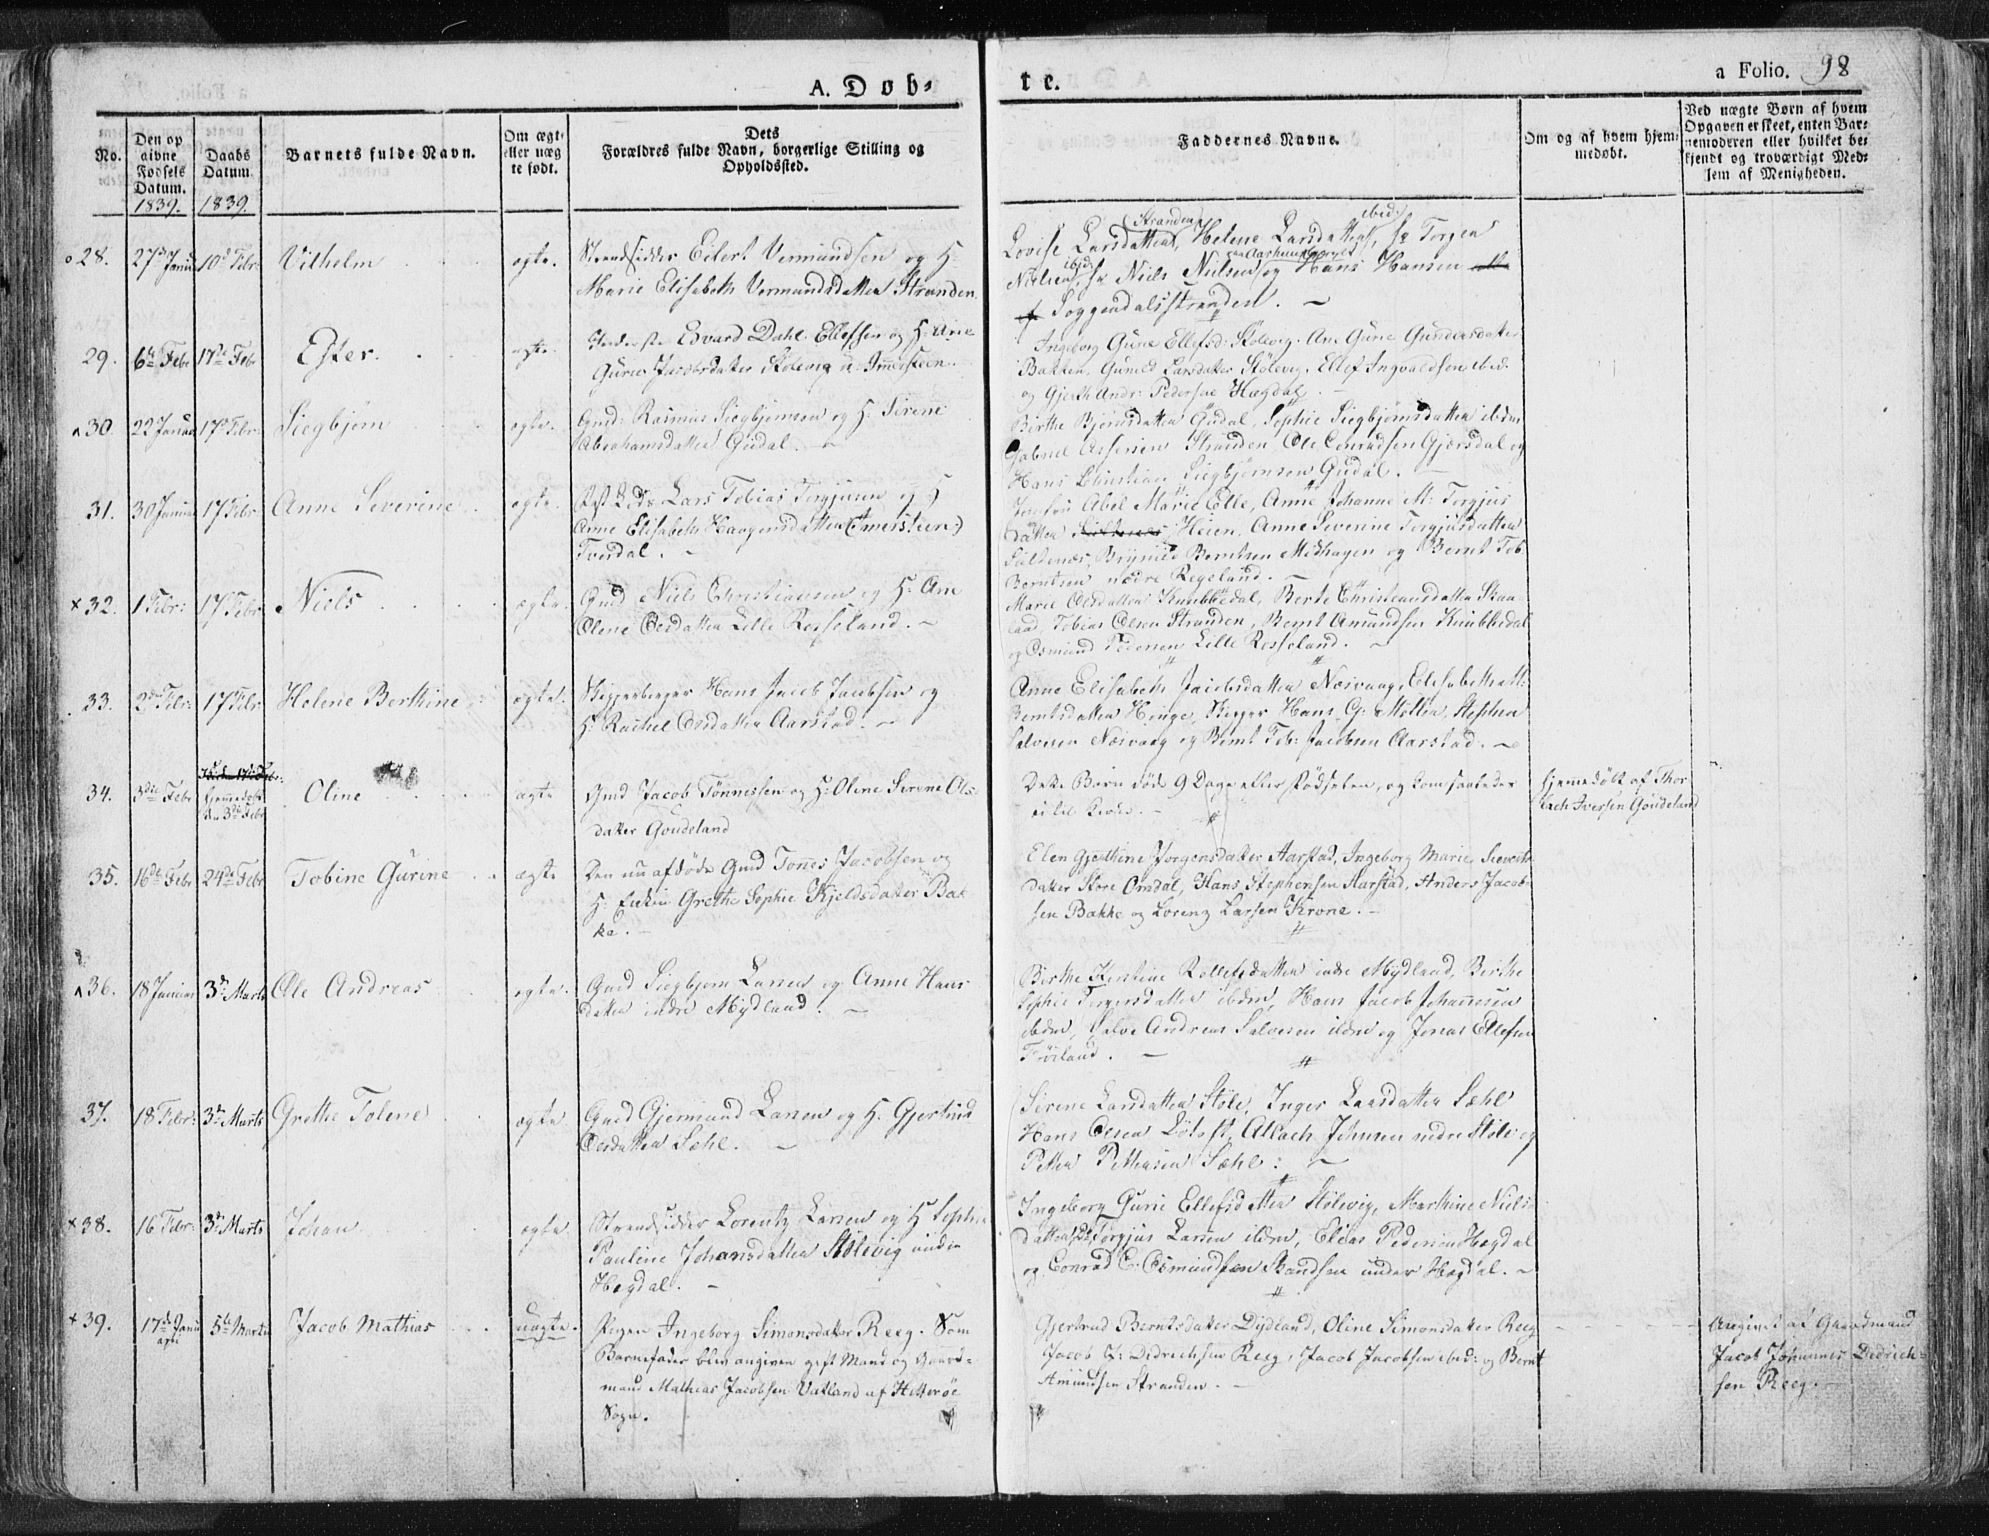 A. Döb-
te.
a Folio. 98
No.
Den op
givne
Fødsels
Datum.
1839.
Daabs
Datum
1839.
Barnets fulde Navn.
Om ægte
eller uæg
te født.
Dets
Forældres fulde Navn, borgerlige Stilling og
Opholdssted.
Faddernes Navne.
Om og af hvem hjem-
medøbt.
Ved uægte Børn af hvem
Opgaven er skeet, enten Bar-
nemoderen eller hvilket be-
kjendt og troværdigt Med-
lem af Menigheden.
28. 27de Janu 10de Febr. Vilhelm ægte.
Strandsidder Eilert Vermundsen og H:
Marie Elisabeth Vermundsdatter Stranden.
Stranden ibid:
Lovise Larsdatter, Helene Larsdatter, Torger
Nielsen ibid, Niels Nielsen og Hans Hansen
af Soggendalsstranden.
29. 6te Febr 17de Febr Ester. ægte.
Edvard Dahl Ellefsen og H: Ane
Gurie Jacobsdatter Stølevig
Ingeborg Gurie Ellefsd: Stølevig. Ane Gurie Gundersdatter
Bakken, Gunild Larsdatter Stølevig, Ellef Ingvaldsen ibid:
og Gjert Andr: Pedersen Hægdal.
30. 22 Januar 17de Febr. Siegbjørn ægte.
Gmd: Rasmus Siegbjørnsen og H: Sirene
Abrahamsdatter Gudal.
Birthe Bjørnsdatter Gudal, Sophie Siegbjørnsdatter ibidm
Gabriel Assersen Stranden, Ole Conradsen Gjersdal og
Hans Christian Siegbjørnsen Gudal.
31. 30 Januar 17 Febr. Anne Severine ægte.
Lars Tobias Torgjusen og H
Anne Elisabeth Haagensdatter (Immersteen)
Tverdal.
Jomfru Abel Marie Elle, Anne Johanne M: Torgjus
datter Heien, Anne Severine Torgjusdatter
Saltenæs, Brynild Berntsen Midhagen og Bernt Tob:
Berntsen nedre Regeland.
32. 1 Febr: 17de Febr Niels ægte.
Gmd Niels Christiansen og H: Ane
Olene Olsdatter Lille Rosseland.
Marie Olsdatter Knubbedal, Berte Christiansdatter Skaa
land, Tobias Olsen Stranden, Bernt Amundsen Knubbedal
og Osmund Pedersen Lille Rosseland.
33. 2de Febr: 17 Febr. Helene Berthine ægte.
Skipperborger Hans Jacob Jacobsen og
H: Rachel Olsdatter Aarstad.
Anne Elisabeth Jacobsdatter Nesvaag, Elisabeth M:
Berntsdatter Hinge, Skipper Hans G: Møller, Stephen
Salvesen Nesvaag og Bernt Tob: Jacobsen Aarstad.
34. 3die Febr
hjemmedøbt
den 3die Febr
Oline ægte
Gmd Jacob Tønnessen og H: Oline Serene Ols
datter Goudeland
Dette Barn døde 9 Dage efter Fødselen, og kom saaledes
ei til Kirke.
hjemmedøbt af Thor
lach Iversen Goudeland
35. 16de Febr 24de Febr Tobine Gurine ægte
Den nu afdøde Gmd Tonnes Jacobsen og
H: Enken Grethe Sophie Kjeldsdatter Bak
ke.
Elen Gjerthine Jorgensdatter Aarstad, Ingeborg Marie Sieverts
datter Store Omdal, Hans Stephensen Aarstad, Anders Jacob-
sen Bakke og Lorenz Larsen Krone.
36. 18 Januar 3die Marts Ole Andreas ægte.
Gmd Siegbjørn Larsen og Anne Hans
datter indre Mydland.
Birthe Kirstine Rollefsdatter indre Mydland, Birthe
Sophie Torgersdatter ibidm, Hans Jacob Johannesen
ibidm, Salve Andreas Salvesen ibidm og Jonas Ellefsen
Frøiland.
37. 18 Febr: 3die Marts Grethe Tolene ægte
Gmd Gjermund Larsen og H: Gjertrud
Olsdatter Sæhl.
Sirene Larsdatter Støle, Inger Larsdatter Sæhl
Hans Olsen Løtoft, Atlach Johnsen nedre Støle og
Petter Pettersen Sæhl:
38. 16 Febr: 3die Marts Johan ægte.
Strandsidder Lorentz Larsen og H Sophie
Pauline Johansdatter Stølevig under
Hægdal.
Ingeborg Gurie Ellefsdatter Stølevig, Marthine Niels
datter Torgjus Larsen ibidm, Elias Pedersen Hægdal
og Conrad E: Osmundsen Sandsen under Hægdal.
39. 17de Janu
ari
5te Marts Jacob Mathias uægte.
Pigen Ingeborg Simonsdatter Reeg. Som
Barnefader blev angiven gift Mand og Gaard-
mand Mathias Jacobsen Vatland af Hitterøe
Sogn.
Gjertrud Berntsdatter Dydland, Oline Simonsdatter Reeg
Jacob J: Dedrichsen Reeg, Jacob Jacobsen ibid: og Bernt
Amundsen Stranden.
Angivet af Gaardmand
Jacob Johannes Dedrich-
sen Reeg.